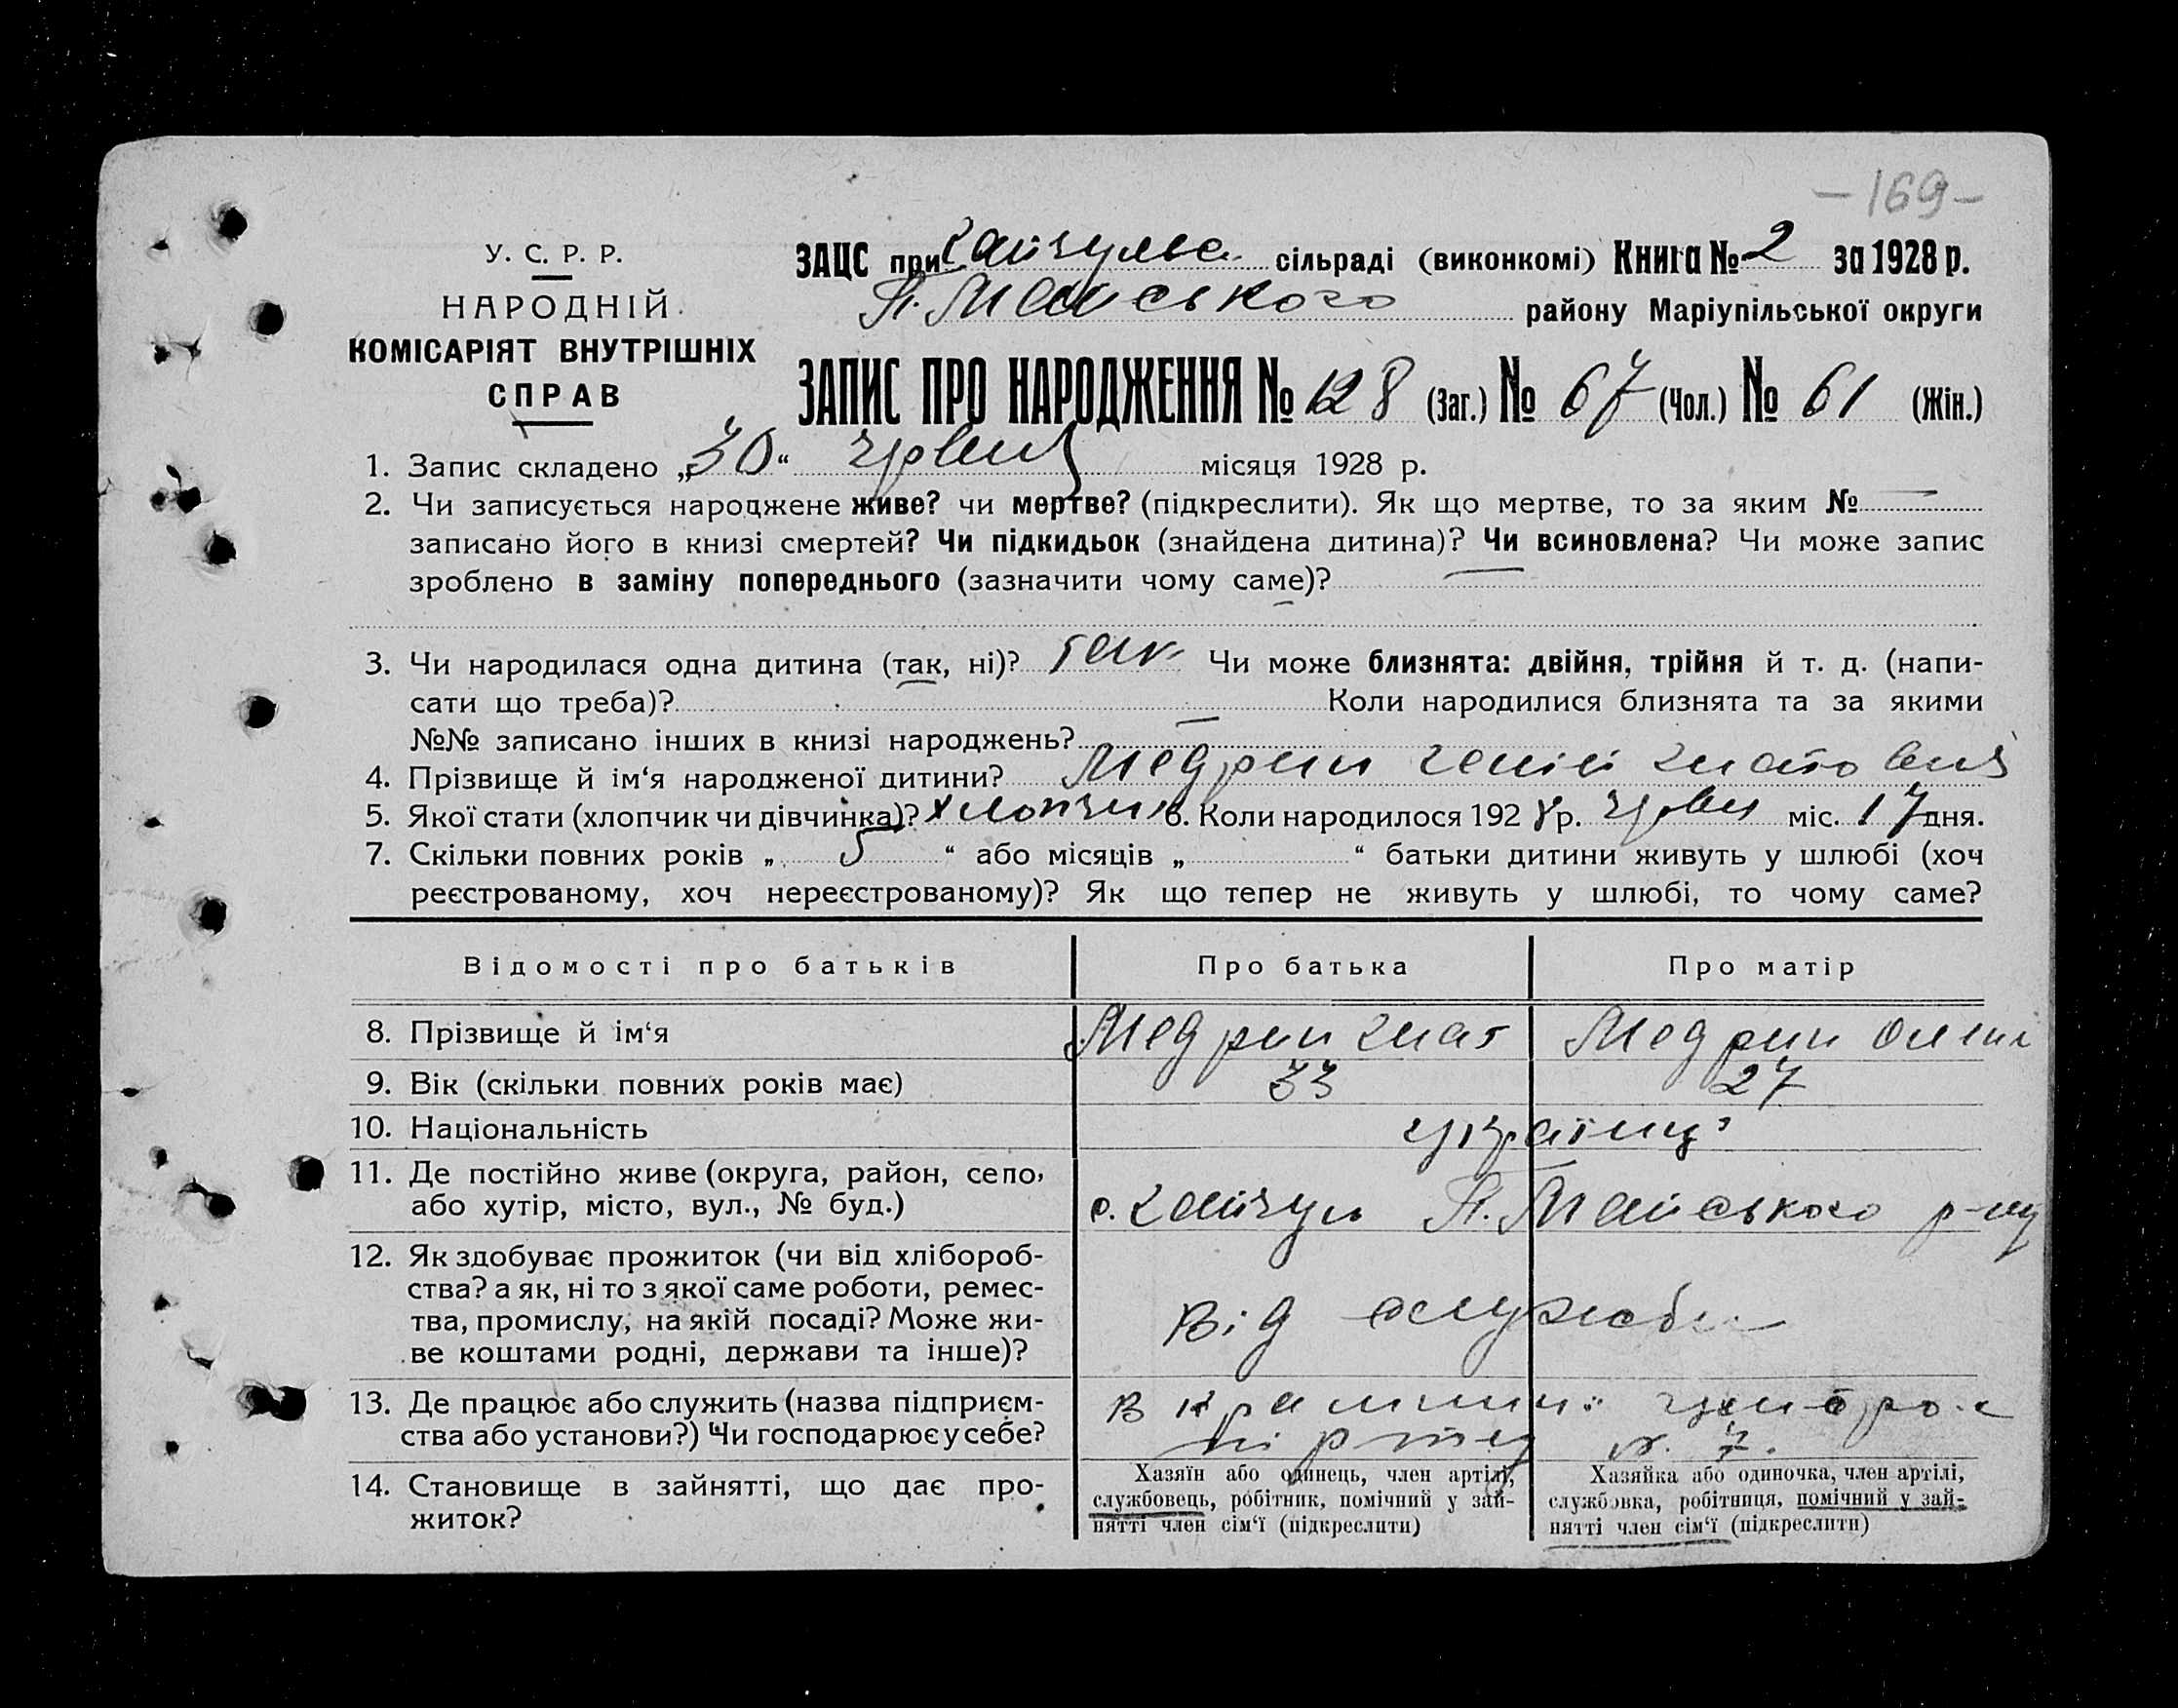 -169-
У. С. Р. Р.
НАРОДНІЙ
КОМІСАРІЯТ ВНУТРІШНІХ
СПРАВ
ЗАЦС при сільраді (виконкомі) Книга № 2 за 1928 р.
району Маріупільської округи
ЗАПИС ПРО НАРОДЖЕННЯ № 128 (Заг.) № 67 (Чол.) № 61 (Жін.)
1. Запис складено „30“ червня місяця 1928 р.
2. Чи записується народжене живе? чи мертве? (підкреслити). Як що мертве, то за яким № —
записано його в книзі смертей? Чи підкидьок (знайдена дитина)? Чи всиновлена? Чи може запис
зроблено в заміну попереднього (зазначити чому саме)? —
3. Чи народилася одна дитина (так, ні)? так Чи може близнята: двійня, трійня й т. д. (напи-
сати що треба)? Коли народилися близнята та за якими
№№ записано інших в книзі народжень? —
4. Прізвище й ім‘я народженої дитини? Медрин
5. Якої стати (хлопчик чи дівчинка)? хлопчик 6. Коли народилося 1928 р. червн міс. 17 дня.
7. Скільки повних років „ 5 “ або місяців „ “ батьки дитини живуть у шлюбі (хоч
реєстрованому, хоч нереєстрованому)? Як що тепер не живуть у шлюбі, то чому саме?
Відомості про батьків Про батька Про матір
8. Прізвище й ім‘я Медрин Гнат Медрин
9. Вік (скільки повних років має) 33 27
10. Національність українці
11. Де постійно живе (округа, район, село,
або хутір, місто, вул., № буд.) с. Гайчул
12. Як здобуває прожиток (чи від хлібороб-
ства? а як, ні то з якої саме роботи, ремес-
тва, промислу, на якій посаді? Може жи-
ве коштами родні, держави та інше)? Від служби
13. Де працює або служить (назва підприєм-
ства або установи?) Чи господарює у себе? В
14. Становище в зайнятті, що дає про-
житок?
Хазяїн або одинець, член артілі,
службовець, робітник, помічний у зай-
нятті член сім‘ї (підкреслити)
Хазяйка або одиночка, член артілі,
службовка, робітниця, помічний у зай-
нятті член сім‘ї (підкреслити)